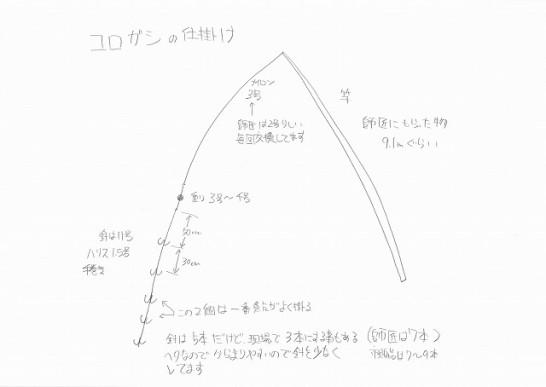 コロガシの仕掛け
ナイロン
3号
師匠は2号らしい
毎回交換してます
竿
師匠にもらった物
9.1mぐらい
3号〜4号
50cm
針は11号
ハリス1.5号
手巻き
30cm
この2個は一番魚がよく掛る
針は5本だけど、現場で3本にする事もある
(師匠は7本)
ヘタなのでからまりやすいので針を少なく
してます
は7〜9本